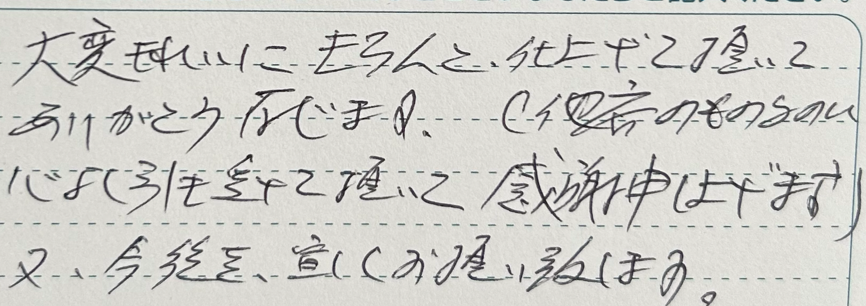 大変きれいに きちんと、仕上げて頂いて
ありがとう存じます。(他店のものを
心よく引き受けて頂いて 感謝申し上げます)
又、今後も、宜しくお願い致します。